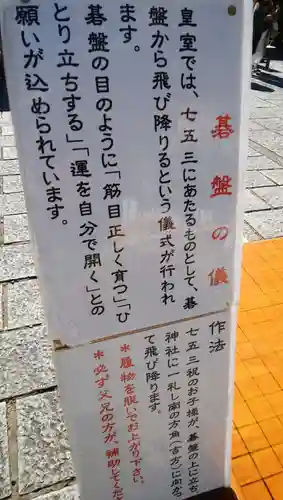 碁盤の儀
皇室では、七五三にあたるものとして、碁
盤から飛び降りるという儀式が行われ
ます。
碁盤の目のように「筋目正しく育つ」「ひ
とり立ちする」「運を自分で開く」との
願いが込められています。
作法
七五三祝のお子様が、碁盤の上に立ち
神社に一礼し南の方角(吉方)に向かっ
て飛び降ります。
*履物を脱いでお上がり下さい。
*必ず父兄の方が、補助してくだ